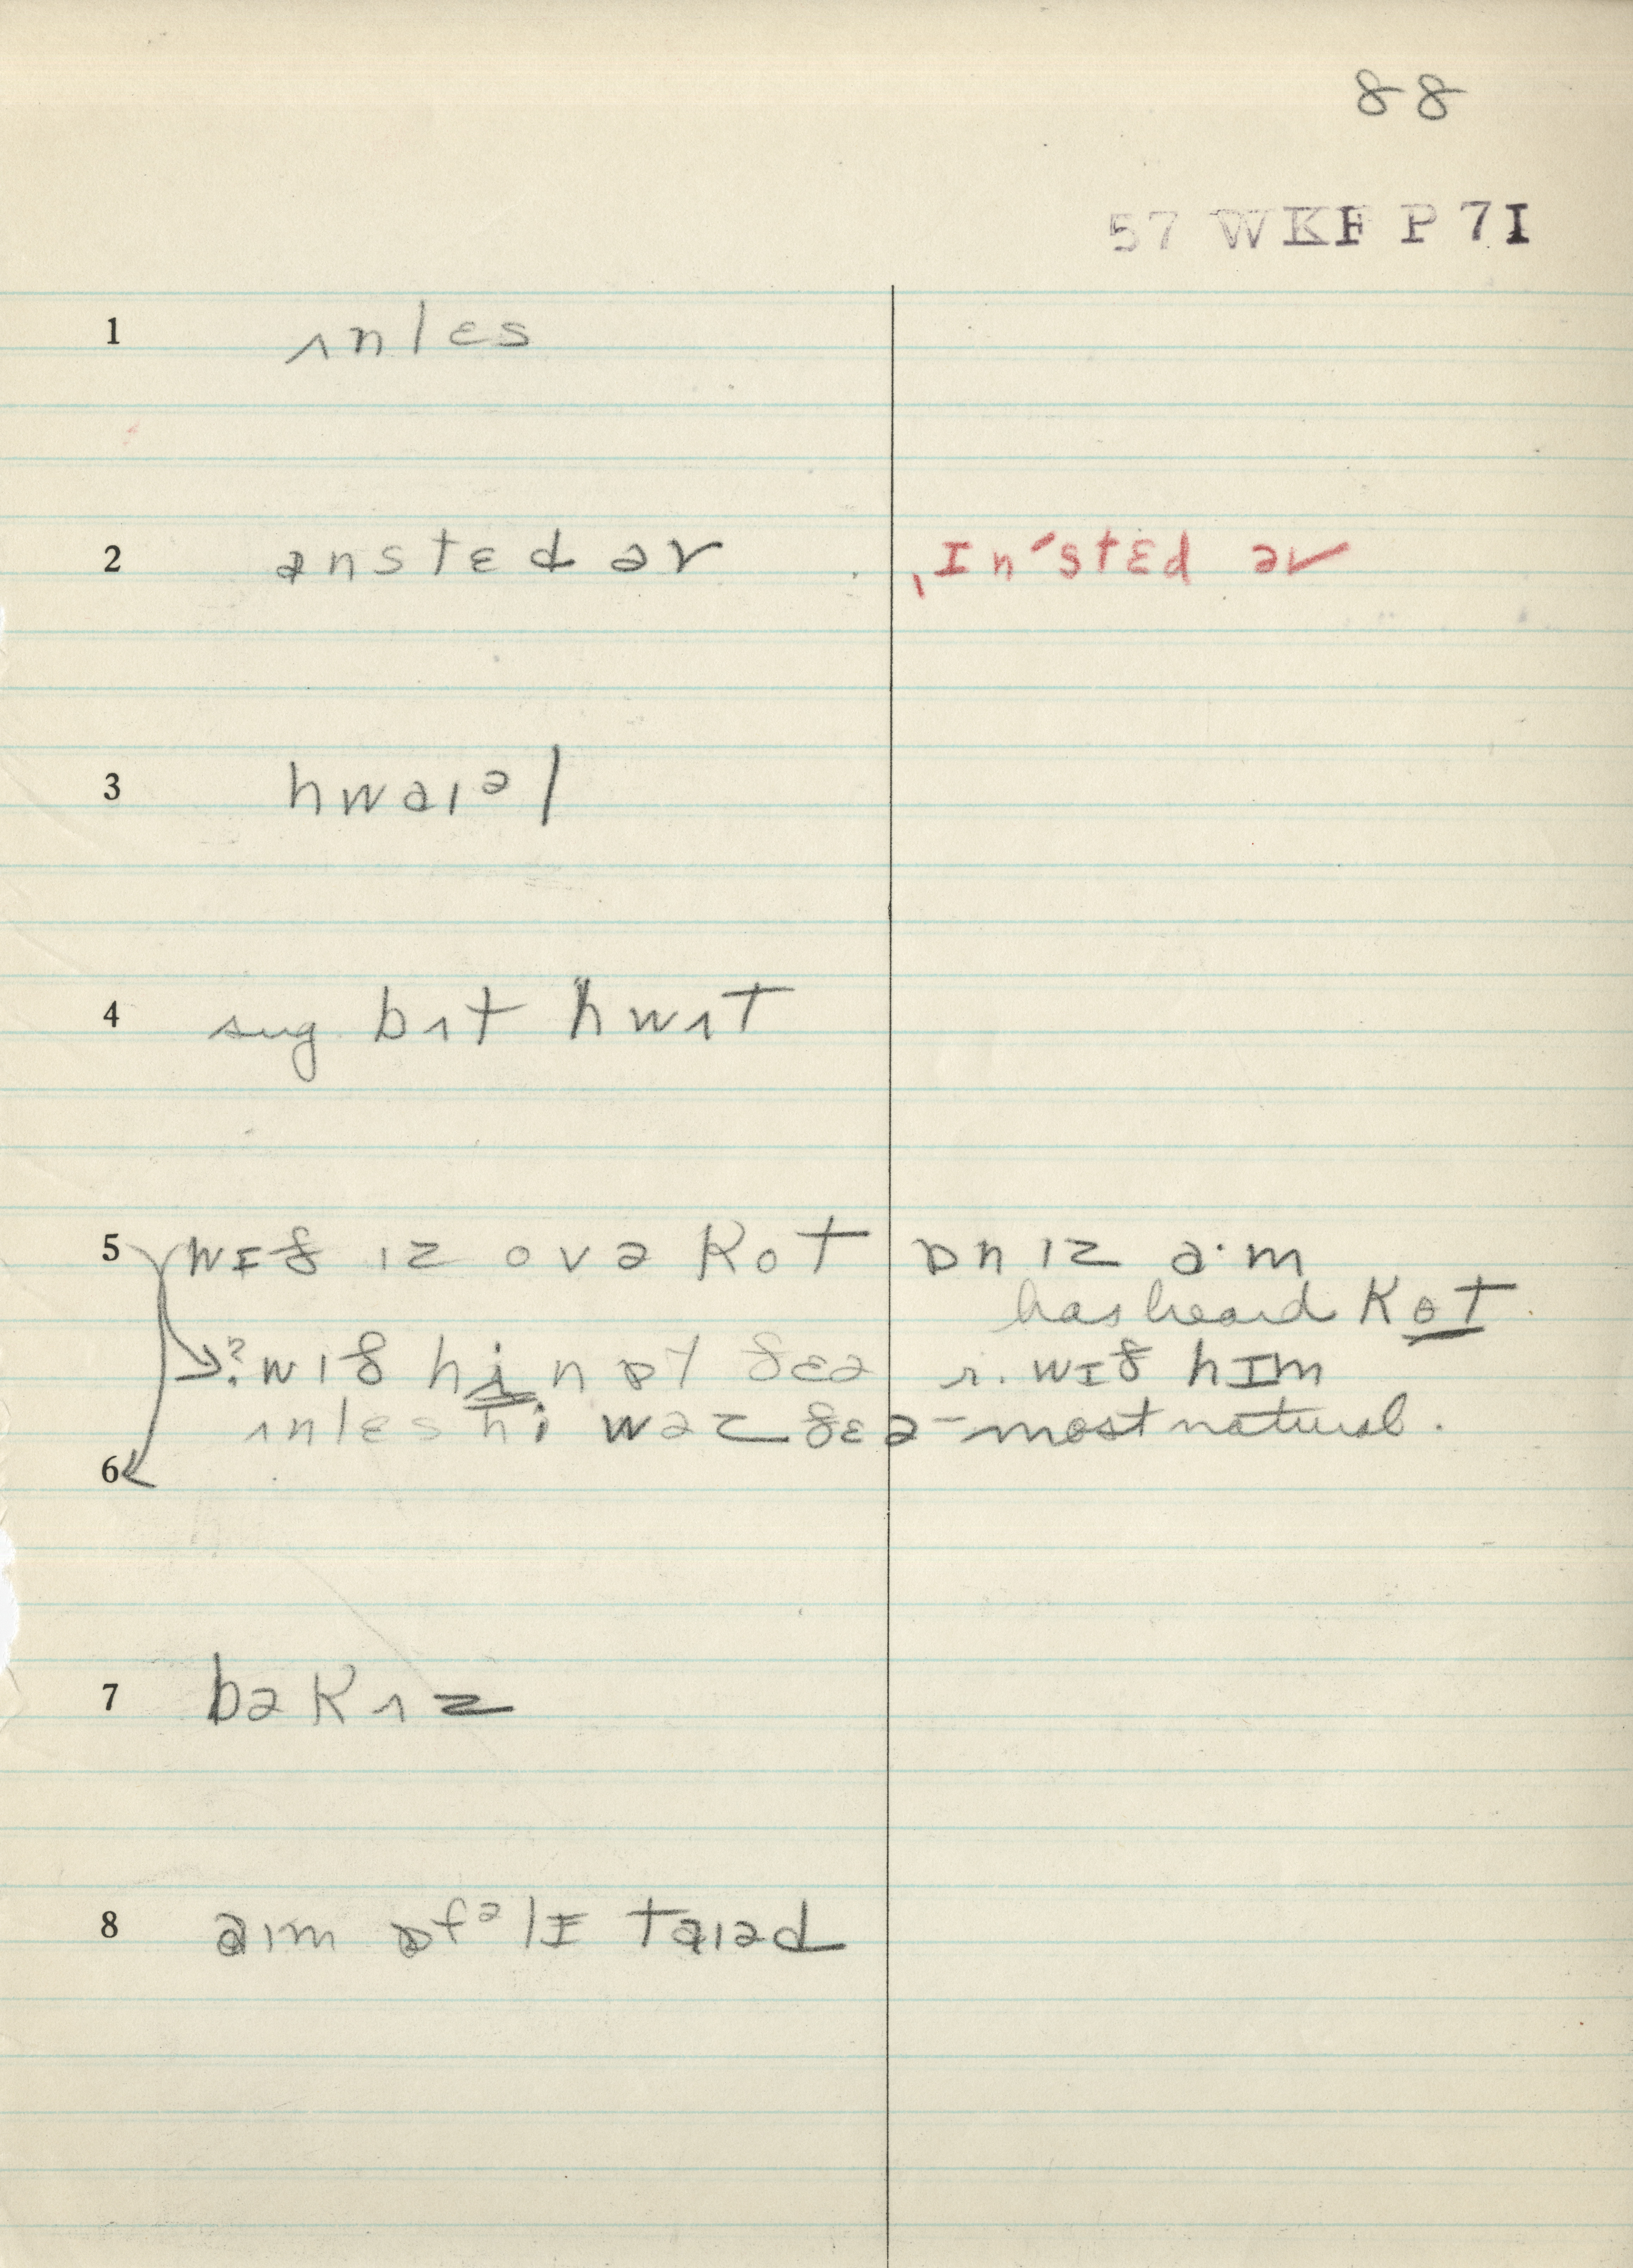 88
57 WKF P 7I
1 ʌnlɛs
2 ənstɛd əv ˌIn'stɛd əv
3 hwaɪᵊl
4 sug. bʌt hwʌt
5 wɪð ɪz ovə kot ɒn ɪz a·m
has heard kɵt.
?: wɪð hi nɒt ðɛə r. wɪð hɪm
ʌnlɛs hi wəz ðɛə - most natural.
6
7 bəkʌz
8 aɪm ɒfᵊlɪ taɪəd